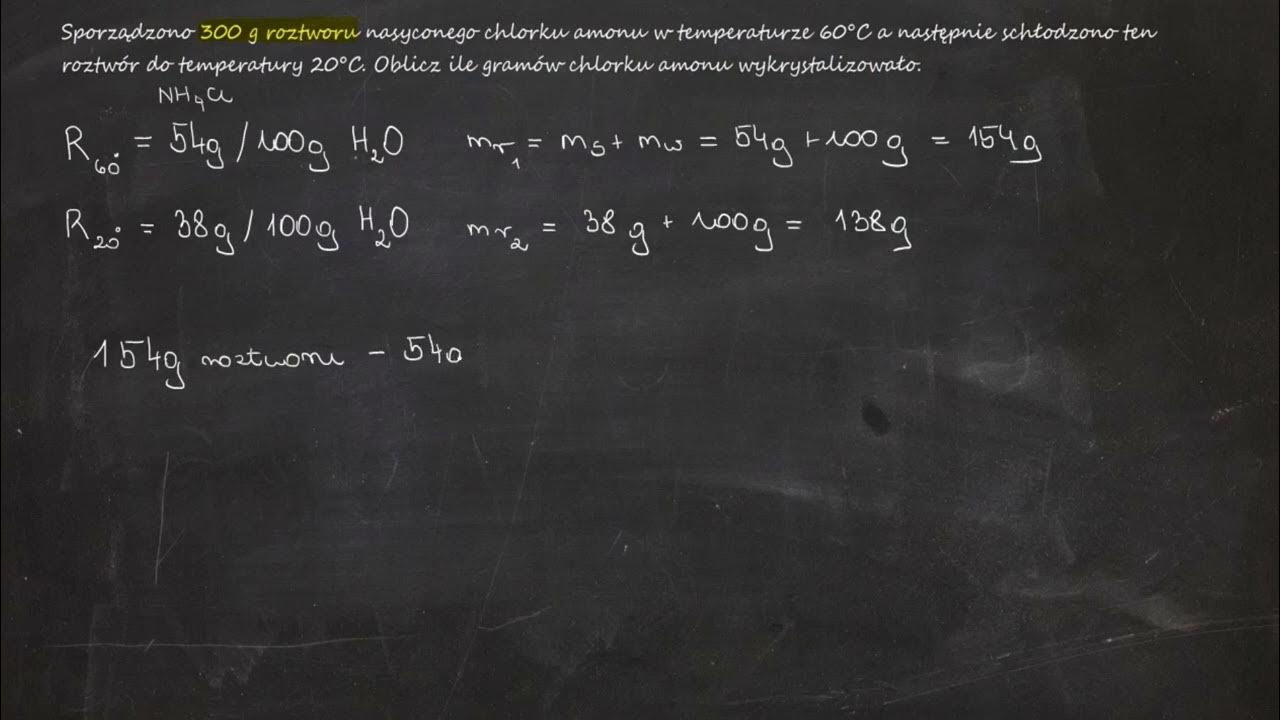 Sporządzono 300 g roztworu nasyconego chlorku amonu w temperaturze 60°C a następnie schłodzono ten
roztwór do temperatury 20°C. Oblicz ile gramów chlorku amonu wykrystalizowało.
NH₄Cl
R₆₀° = 54g / 100g H₂O mr₁ = ms + mw = 54g + 100g = 154g
R₂₀° = 38g / 100g H₂O mr₂ = 38g + 100g = 138g
154g roztworu – 54g